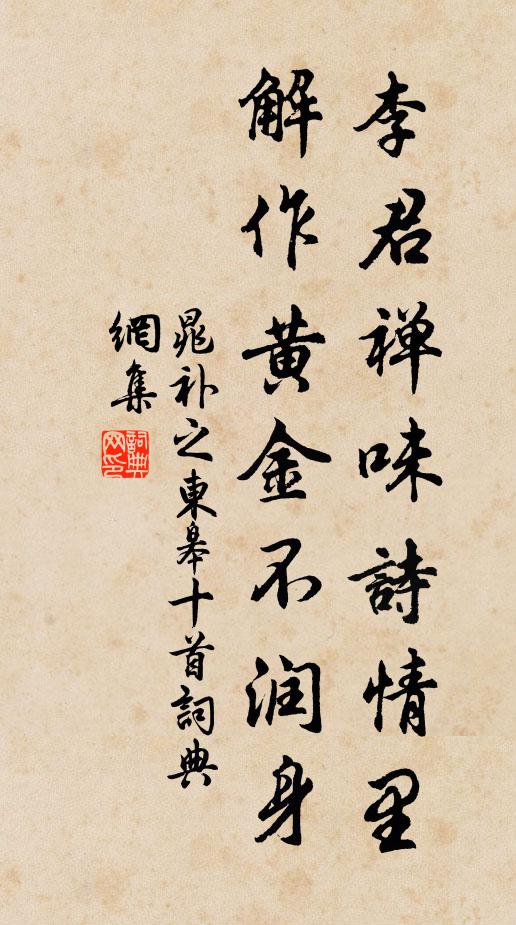 李君禅味詩情里
解作黄金不润身
晁补之東皋十首詞典
網集
詞典
网印